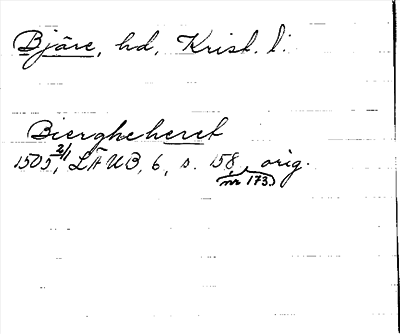 Bjäre, hd, Krist. l:
Biergheheret
1505 2/1, LÄUB, 6, s. 158, orig.
nr 173.